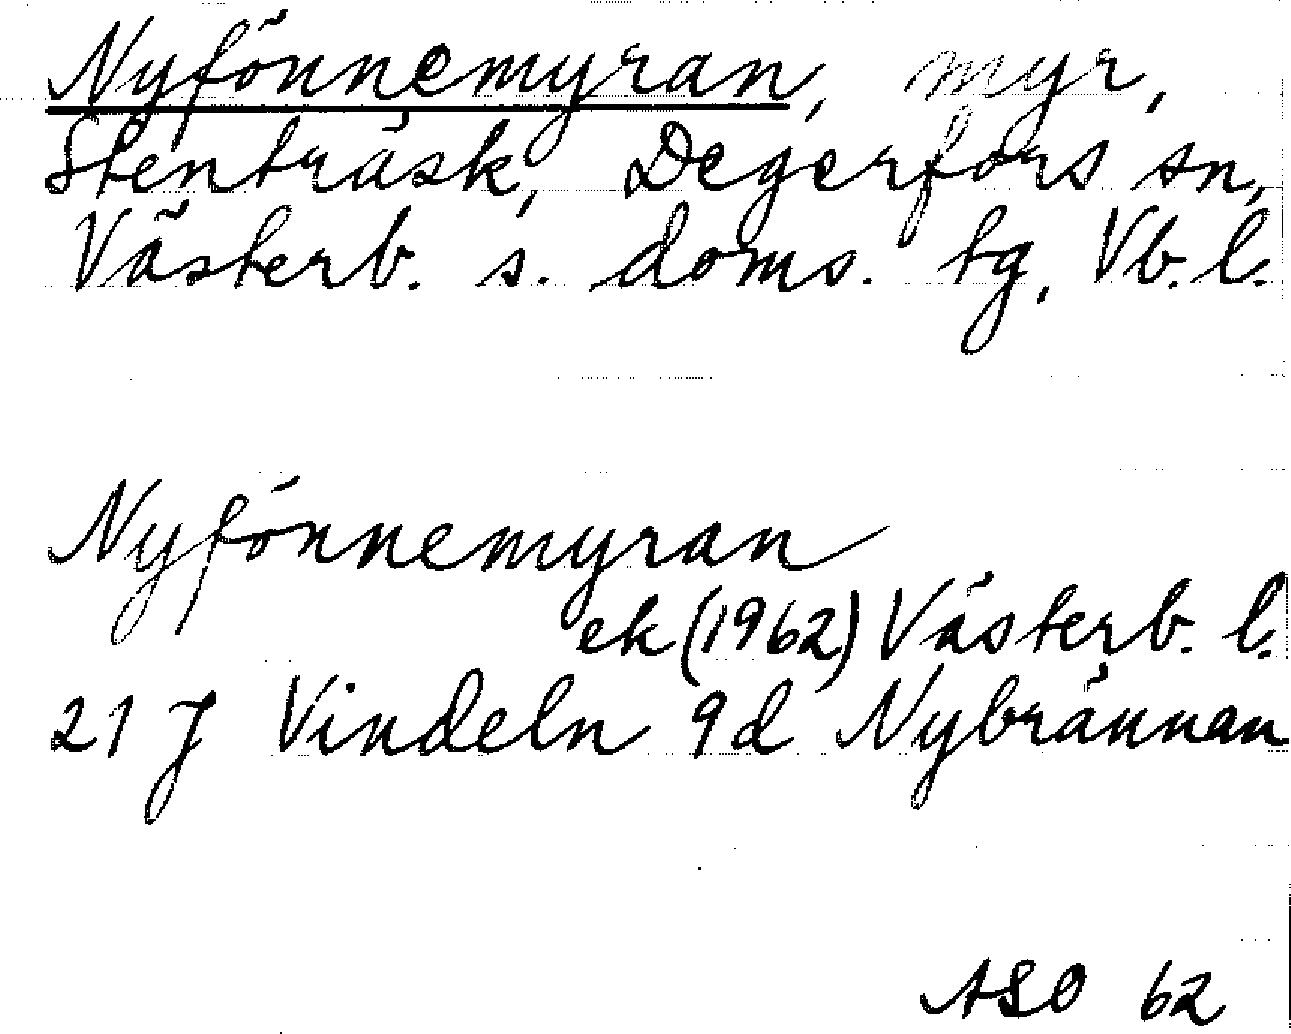 Nyfönnemyran, myr,
Stenträsk, Degerfors sn,
Västerb. s. doms. tg, Vb. l.
Nyfönnemyran
ek (1962) Västerb. l.
21 J Vindeln 9d Nybrännan
ASO 62